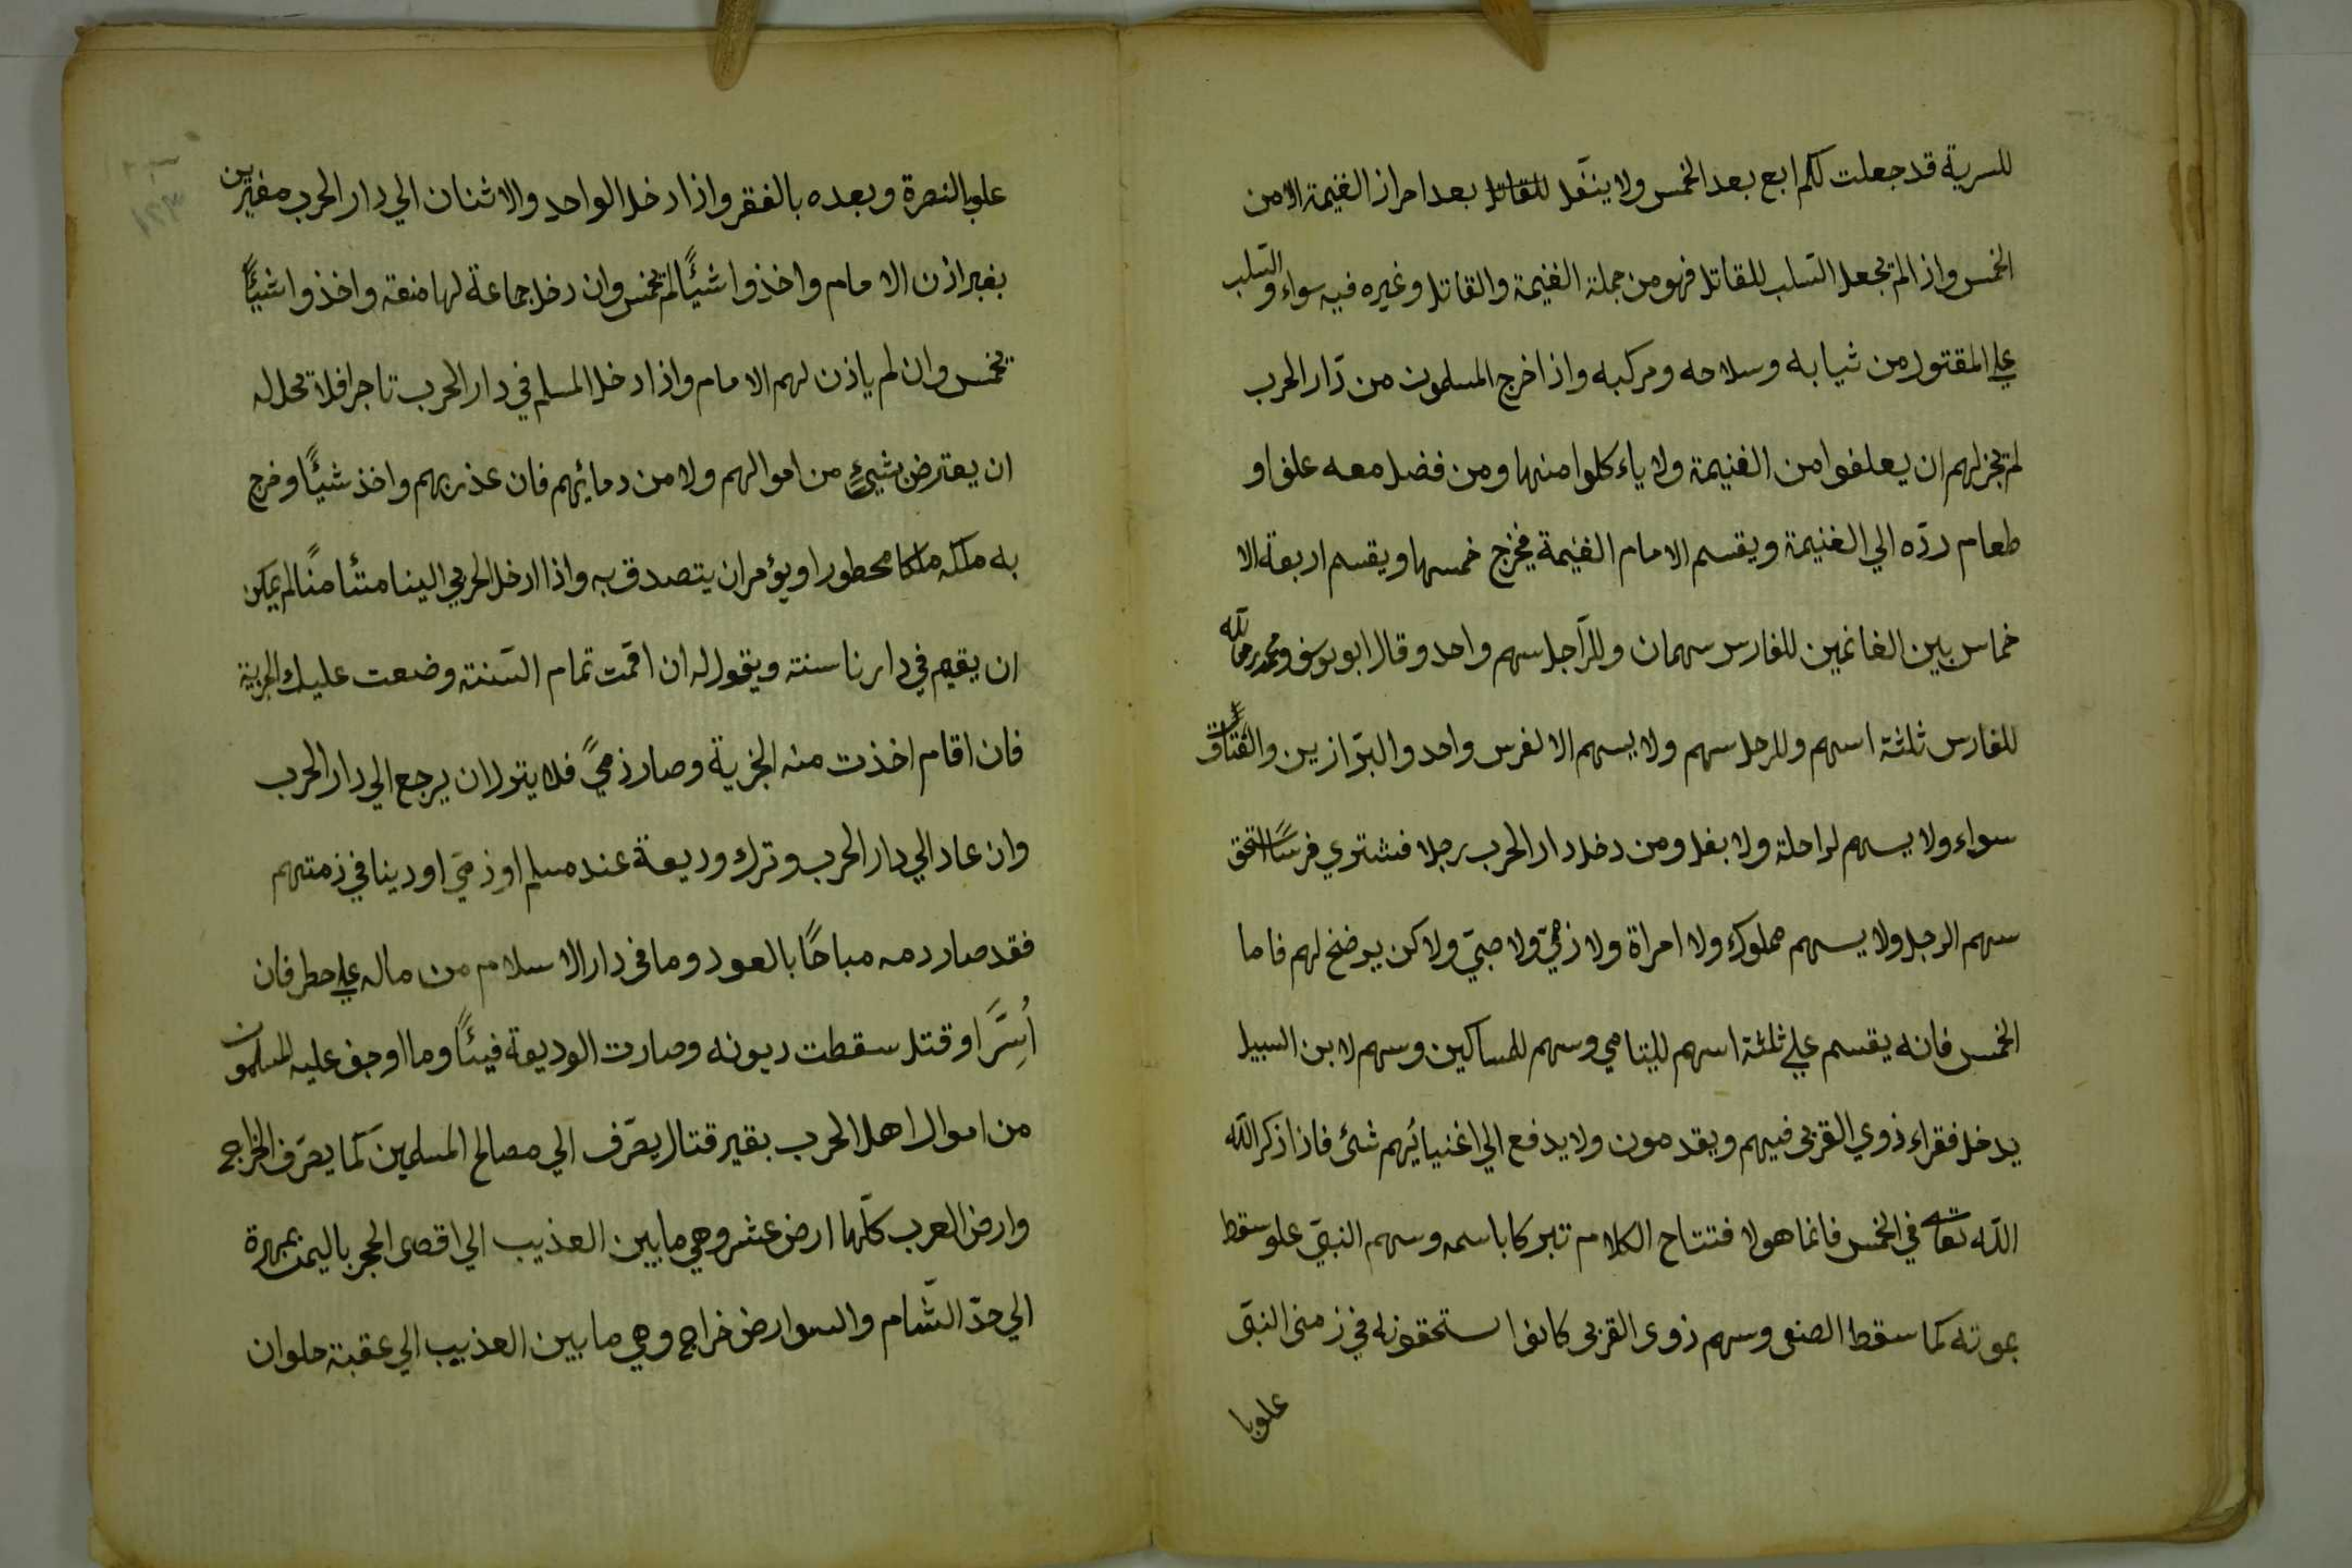 للسرية قد جعلت لكم ابع بعد الخمس ولا ينفل للقاتل بعد احراز الغنيمة الا من
الخمس واذا لم يجعل السّلب للقاتل فهو من جملة الغنيمة والقاتل وغيره فيه سواء والسّلب
علي المقتول من ثيابه وسلاحه ومركبه واذا خرج المسلمون من دار الحرب
لم يجز لهم ان يعلفوا من الغنيمة ولا ياءكلوا منها ومن فضل معه علفا و
طعام ردّه الي الغنيمة ويقسم الامام الغنيمة فيخرج خمسها ويقسم اربعة الا
خماس بين الغانمين للفارس سهمان وللرّاجل سهم واحد وقال ابو يوسف ومحمد رحمالله
للفارس ثلثة اسهم وللرجل سهم ولا يسهم الا لفرس واحد والبرّازين والعتاق
سواء ولا يسهم لراحلة ولا بغل ومن دخل دار الحرب رجلا فشتري فرسًا استحق
سهم الرجل ولا يسهم مملوك ولا امراة ولا ذمّيّ ولا صبيّ ولاكن يرضخ لهم فاما
الخمس فانه يقسم علي ثلثة اسهم لليتامي وسهم للمساكين وسهم لابن السبيل
يدخل فقراء ذوي القربى فيهم ويقدمون ولا يدفع الي اغنيائهم شئ فاذا ذكر الله
الله تعا في الخمس فانما هو لا فتتاح الكلام تبركا باسمه وسهم النبيّ علو سقط
بموته كما سقط الصفى وسهم ذوى القربى كانوا استحقونه في زمنى النبيّ
علوبا
علو بالنصرة وبعده بالفقر واذا دخل الواحد والاثنان الي دار الحرب مغيرين
بغير اذن الامام واخذوا شيئًا لم يخمس وان دخل جماعة لها منعة واخذوا شيئًا
يخمس وان لم ياذن لهم الامام واذا دخل المسلم في دار الحرب تاجرا فلا يحل له
ان يعترض بشيئ من اموالهم ولا من دمائهم فان عذر بهم واخذ شيئًا وخرج
به ملكه ملكا محطورا ويؤمر ان يتصدق به واذا ادخل الحربي الينا مستأمنًا لم يمكن
ان يقيم في دارنا سنة ويقول له ان اقمت تمام السّنة وضعت عليك الجزية
فان اقام اخذت منه الجزية وصار ذميً فلا يترل ان يرجع الي دار الحرب
وان عاد الي دار الحرب وترك وديعة عند مسلم او ذميّ او دينا في ذمتهم
فقد صار دمه مباحًا بالعود وما فى دار الاسلام من ماله علي حطر فان
اُسِّرَ او قتل سقطت ديونه وصارت الوديعة فيئًا وما اوجف عليه المسلمون
من اموال اهل الحرب بقير قتال يعرّف الي مصالح المسلمين كما يعرّف الخراج
وارض العرب كلّها ارض عشر وهي ما بين العذيب الي اقصى الحجر باليمن بمهرة
الي حدّ الشّام والسوارض خراج وهي ما بين العذيب الي عقبة حلوان